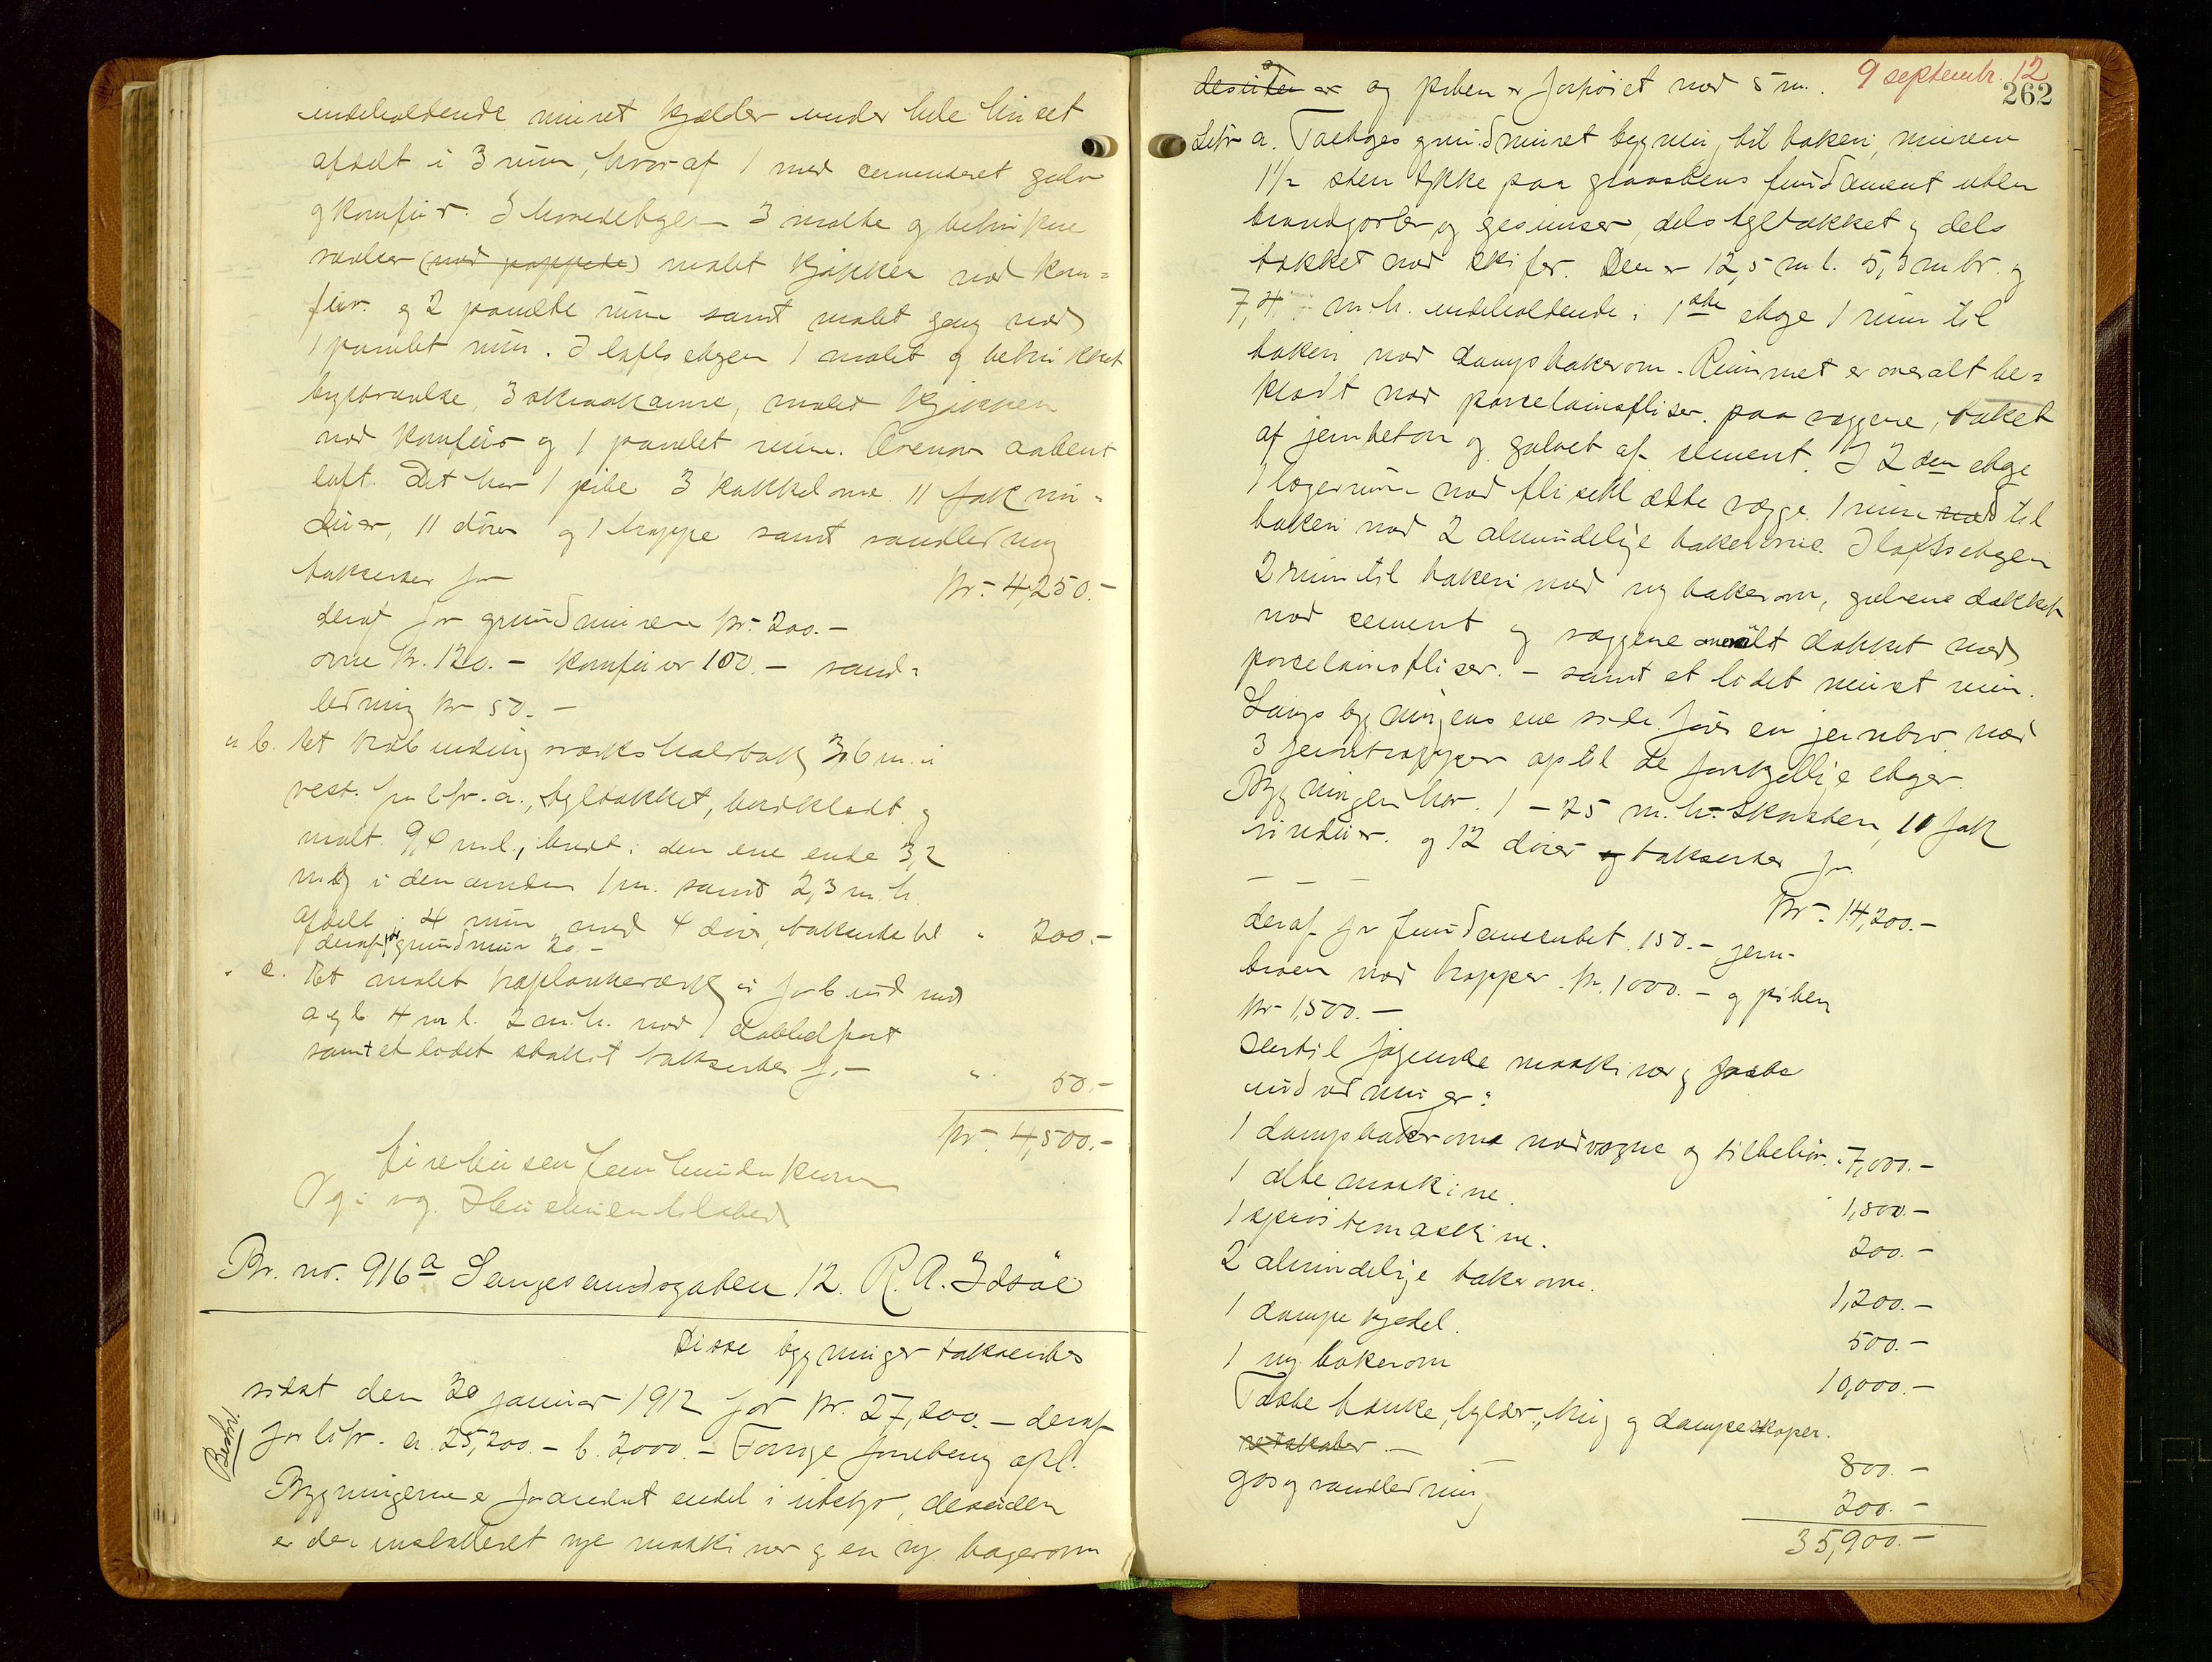 indeholdende muret kjælder under hele huset
afdelt i 3 rum, hvoraf 1 med cementeret gulv
og komfur. I hovedetagen 3 malte og betrukne
værelser (med pappede) malet kjøkken med kom=
fur og 2 panelte rum samt malet gang med
1 panelet rum. I loftsetagen 1 malet og betrukket
kvistværelse, 3 skraakamre, malet kjøkken
med komfur og 1 panelet rum. Ovenover aabent
loft. Det har 1 pibe 3 kakkelovne 11 fak vin=
duer, 11 døre og 1 trappe samt vandledning
takseres for Kr. 4,250.-
deraf for grundmuren kr. 200.-
ovne kr. 120.- komfurer 100.- vand=
ledning kr 50.-
" b. Et træbindingsverks halvtak 3,6 m. i
vest for litr. a., tegltækket, bordklædt og
malt 9,4 m.l., bredt i den ene ende 3,2
m. og i den anden 1 m. samt 2,3 m.h.
afdelt i 4 rum med 4 døre, takseret til " 200.-
deraf for grundmur 20.-
" c. Et malet træplankeverk i forb ind med
a og b 4 m l. 2 m.h. med 1 dobbelport
samt et lidet stakit takseres for " 50.-
Kr. 4,500.-
fire tusen fem hundre kroner
Br. nr. 916a Langesandsgaten 12. R. A. Idsøe
Disse bygninger takseertes
sidst den 30 januar 1912 for kr. 27,200.- deraf
Beskr.
for litr. a. 25,200.- b. 2,000.- Forrige
Bygningerne er forandret endel i utstyr, desuden
er der installeret nye maskiner og en ny bagerovn
9 septembr. 12
262
desuden er og piben er forhøiet med 5 m.
Litr a. Toetages grundmuret bygning til bakeri, murene
1½ sten tykke paa graastens fundament uten
brandgavler og gesimser, dels tegltækket og dels
tækket med skifer. Den er 12,5 m l. 5,3 m br. og
7,4 m h. indeholdende i 1ste etage 1 rum til
bakeri med dampbakerovn. Rummet er overalt be=
klædt med porcelainsfliser paa væggene, taket
af jernbeton og gulvet af cement. I 2den etage
1 lagerrum med fliseklædte vægge 1 rum med til
bakeri med 2 almindelige bakerovne. I loftsetagen
2 rum til bakeri med ny bakerovn, gulvene dækket
med cement og væggene overalt dækket med
porcelainsfliser. - samt et lidet muret rum.
Langs bygningens ene side fører en jernbro med
3 jerntrapper op til de forskjellige etager.
Bygningen har 1 - 25 m. h. skorsten, 11 fak
vinduer og 12 døre og takseertes for
Kr. 14,200.-
deraf for fundamentet 150.- jern-
broen med trapper kr. 1000.- og piben
kr 1,500.-
Dertil følgende maskiner og faste
indredninger:
1 dampbakerovn med vogne og tilbehør. " 7,000.-
1 eltemaskine. " 1,800.-
1 sprøitemaskine. 200.-
2 almindelige bakerovne. 1,200.-
1 dampkjedel. 500.-
1 ny bakerovn 10,000.-
Faste bænke, hylder, og dampeskaper.
redskaber.- 800.-
gas og vandledning 200.-
35,900.-